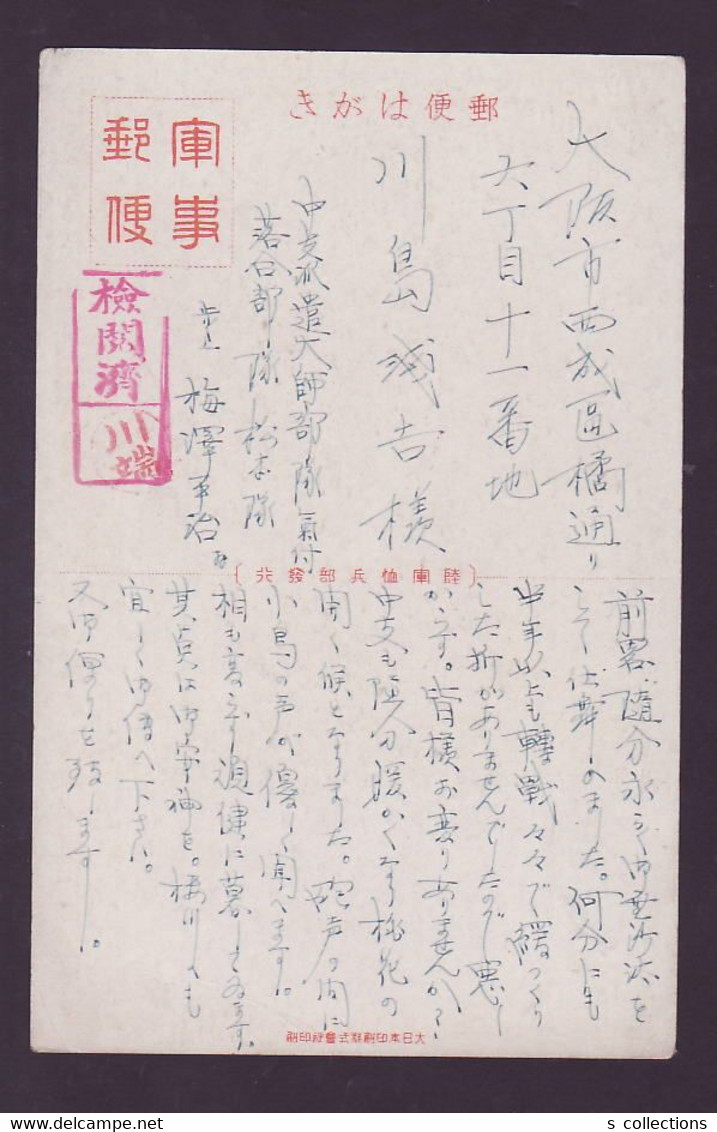 郵便はがき
軍事
郵便
檢閲濟
川端
大阪市西成區橘通り
六丁目十一番地
川島 吉様
中支派遣大師部隊氣付
落合部隊松本隊
歩上 梅澤平治
陸軍恤兵部發行
前畧 隨分永らく御無沙汰を
して仕舞ゐました。何分にも
半年以上も轉戰々々で緩つくり
した折がありませんでしたので悪し
からず。皆様お変りありませんか?
中支も随分暖かくなり桃花の
開く候となりました。砲声の間に
小鳥の声が優しく聞へます。
相も変らず頑健に暮してゐます。
其点は御安神を。 川 も
宜しく御傳へ下さい。
又御便りを致します。
大日本印刷株式會社印刷
s collections